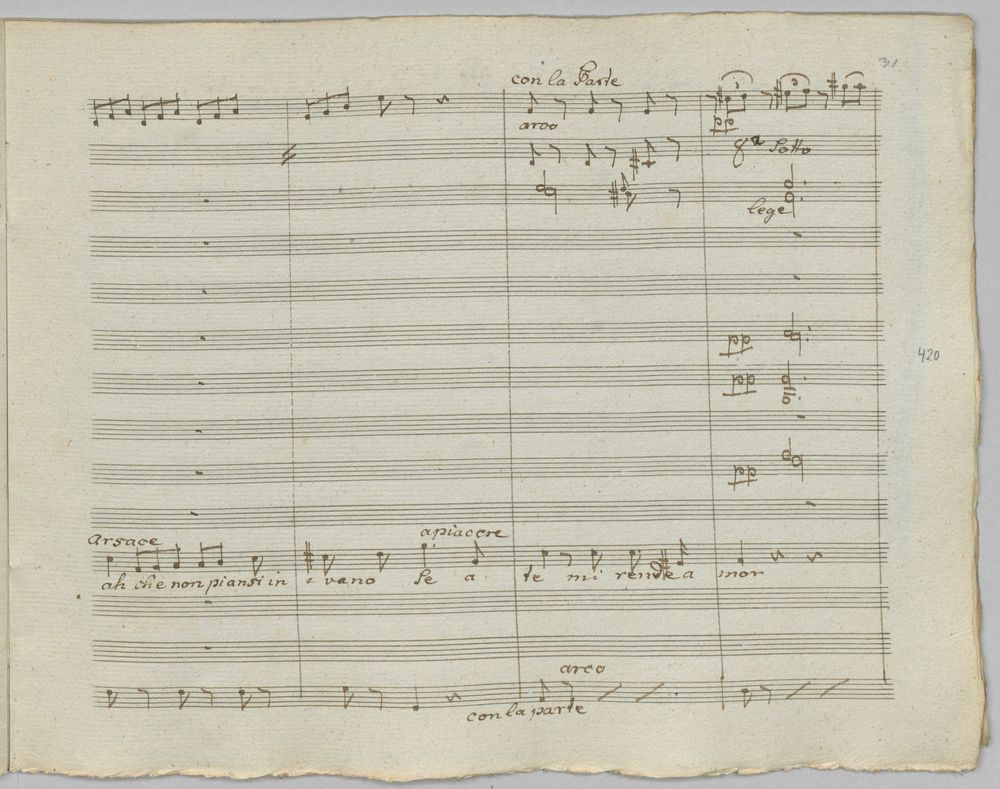 31
con la Parte
arco
pp
8ª Sotto
lege
pp
420
pp
pp
Arsace
a piacere
ah che non piansi in vano Se a te mi rende a mor
arco
con la parte